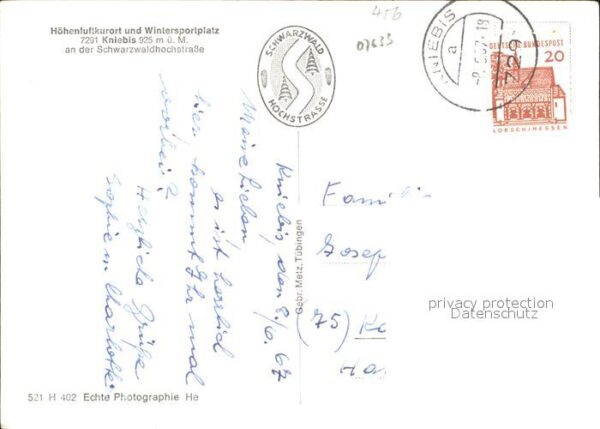 Höhenluftkurort und Wintersportplatz
7291 Kniebis 925 m ü. M.
an der Schwarzwaldhochstraße
SCHWARZWALD
HOCHSTRASSE
456
07633
KNIEBIS
a
729
DEUTSCHE BUNDESPOST
20
LORSCH/HESSEN
Kniebis, den 8/6. 67
Meine Lieben
es ist herrlich
hier, kommt Ihr mal
vorbei?
Herzliche Grüße
Sophie u Charlotte
Gebr. Metz, Tübingen
Familie
Josep
(75) Ka
Ha
privacy protection
Datenschutz
521 H 402 Echte Photographie He